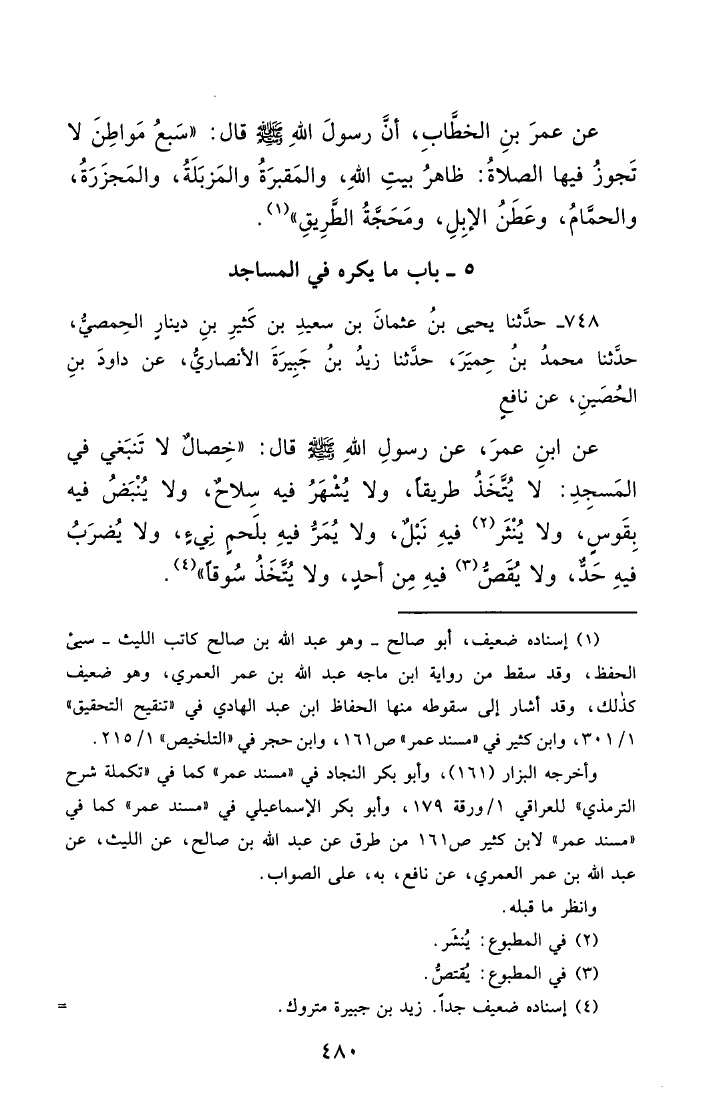 عن عمرَ بنِ الخطَّابِ، أنَّ رسولَ اللهِ ﷺ قال: «سَبعُ مَواطِنَ لا
تَجوزُ فيها الصلاةُ: ظاهرُ بيتِ اللهِ، والمَقبرَةُ والمَزبَلَةُ، والمَجزَرَةُ،
والحمَّامُ، وعَطَنُ الإبِلِ، ومَحَجَّةُ الطَّرِيقِ»(١).
٥ ـ باب ما يكره في المساجد
٧٤٨ـ حدَّثنا يحيى بنُ عثمانَ بن سعيدِ بن كَثيرِ بنِ دينارٍ الحِمصيُّ،
حدَّثنا محمدُ بنُ حِميَرَ، حدَّثنا زيدُ بنُ جَبِيرَةَ الأنصاريُّ، عن داودَ بنِ
الحُصَينِ، عن نافعٍ
عن ابنِ عمرَ، عن رسولِ اللهِ ﷺ قال: «خِصالٌ لا تَنبَغي في
المَسجِدِ: لا يُتَّخَذُ طريقاً، ولا يُشْهَرُ فيه سِلاحٌ، ولا يُنْبَضُ فيه
بِقَوسٍ، ولا يُنْثَر(٢) فيهِ نَبْلٌ، ولا يُمَرُّ فيهِ بلَحمٍ نِيءٍ، ولا يُضرَبُ
فيهِ حَدٌّ، ولا يُقَصُّ(٣) فيهِ مِن أحدٍ، ولا يُتَّخَذُ سُوقاً»(٤).
(١) إسناده ضعيف، أبو صالح ـ وهو عبد الله بن صالح كاتب الليث ـ سيئ
الحفظ، وقد سقط من رواية ابن ماجه عبد الله بن عمر العمري، وهو ضعيف
كذلك، وقد أشار إلى سقوطه منها الحفاظ ابن عبد الهادي في «تنقيح التحقيق»
١/ ٣٠١، وابن كثير في «مسند عمر» ص١٦١، وابن حجر في «التلخيص» ١/ ٢١٥.
وأخرجه البزار (١٦١)، وأبو بكر النجاد في «مسند عمر» كما في «تكملة شرح
الترمذي» للعراقي ١/ ورقة ١٧٩، وأبو بكر الإسماعيلي في «مسند عمر» كما في
«مسند عمر» لابن كثير ص١٦١ من طرق عن عبد الله بن صالح، عن الليث، عن
عبد الله بن عمر العمري، عن نافع، به، على الصواب.
وانظر ما قبله.
(٢) في المطبوع: يُنشَر.
(٣) في المطبوع: يُقتصُّ.
(٤) إسناده ضعيف جداً. زيد بن جبيرة متروك. =
٤٨٠